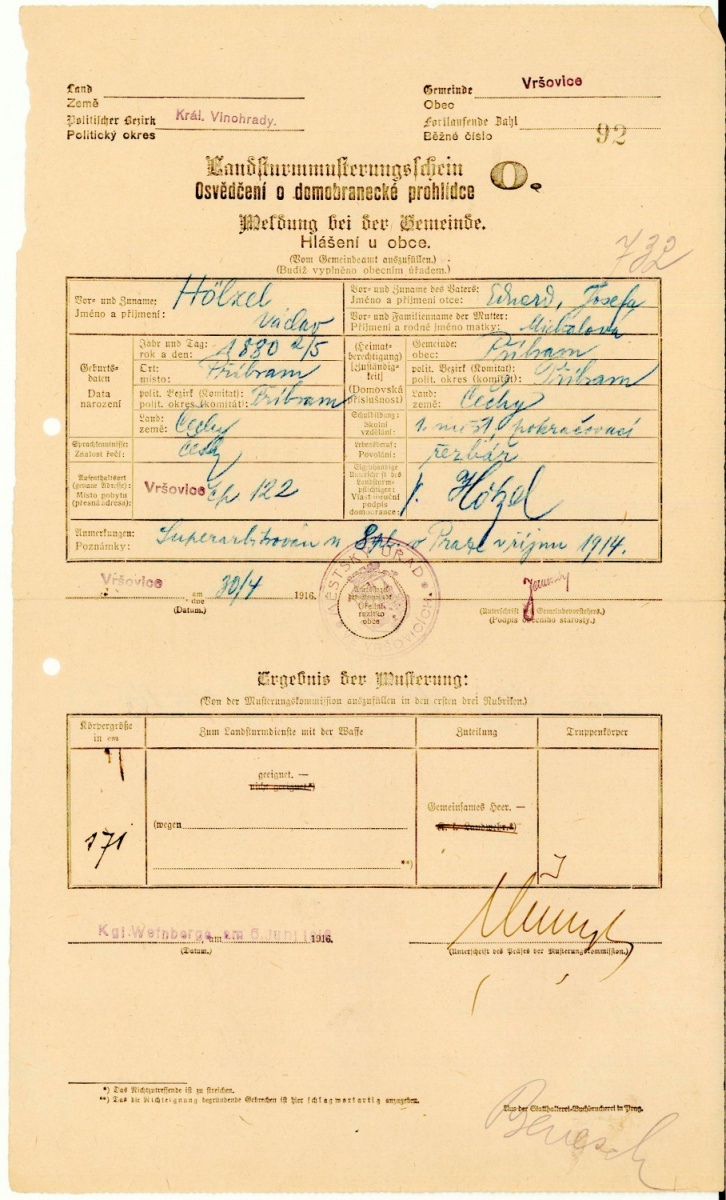 Land
Země
Politischer Bezirk Král. Vinohrady.
Politický okres
Gemeinde Vršovice
Obec
Fortlaufende Zahl
Běžné číslo 92
Landsturmmusterungsschein
Osvědčení o domobranecké prohlídce O.
Meldung bei der Gemeinde.
Hlášení u obce.
732
(Vom Gemeindeamt auszufüllen.)
(Budiž vyplněno obecním úřadem.)
Vor- und Zuname: Hölzel
Jméno a příjmení: Václav
Vor- und Zuname des Vaters:
Jméno a příjmení otce: Eduard, Josefa
Vor- und Familienname der Mutter:
Příjmení a rodné jméno matky: Michalova
Geburts-
daten
Data
narození
Jahr und Tag:
rok a den: 1880 2/5
Ort:
místo: Příbram
polit. Bezirk (Komitat):
polit. okres (komitát): Příbram
Land:
země: Čechy
(Heimat-
berechtigung)
[Zuständig-
keit]
(Domovská
příslušnost)
Gemeinde:
obec: Příbram
polit. Bezirk (Komitat):
polit. okres (komitát): Příbram
Land:
země: Čechy
Sprachkenntnisse:
Znalost řečí: česky
Schulbildung:
Školní
vzdělání: 1. měšť. pokračovací
Lebensberuf:
Povolání: řezbář
Aufenthaltsort
(genaue Adresse):
Místo pobytu
(přesná adresa): Vršovice čp 122
Eigenhändige
Unterschrift des
Landsturm-
pflichtigen:
Vlastnoruční
podpis
domobrance: V. Hölzel
Anmerkungen:
Poznámky: Superarbitrován u Spl. v Praze v říjnu 1914.
Vršovice am
dne 30/4 1916.
(Datum.)
MĚSTSKÝ ÚŘAD
(Unterschrift d. Gemeindevorstehers.)
(Podpis obecního starosty.)
Ergebnis der Musterung:
(Von der Musterungskommission auszufüllen in den ersten drei Rubriken.)
Körpergröße
in cm
Zum Landsturmdienste mit der Waffe
Zuteilung
Truppenkörper
171
geeignet. —
nicht geeignet*)
(wegen
**)
Gemeinsames Heer. —
k. k. Landwehr.*)
Kgl. Weinberge, am 6. Juni 1916 , am 1916.
(Datum.)
(Unterschrift des Präses der Musterungskommission.)
*) Das Nichtzutreffende ist zu streichen.
**) Das die Nichteignung begründende Gebrechen ist hier schlagwortartig anzugeben.
Aus der Statthalterei-Buchdruckerei in Prag.
Benesch